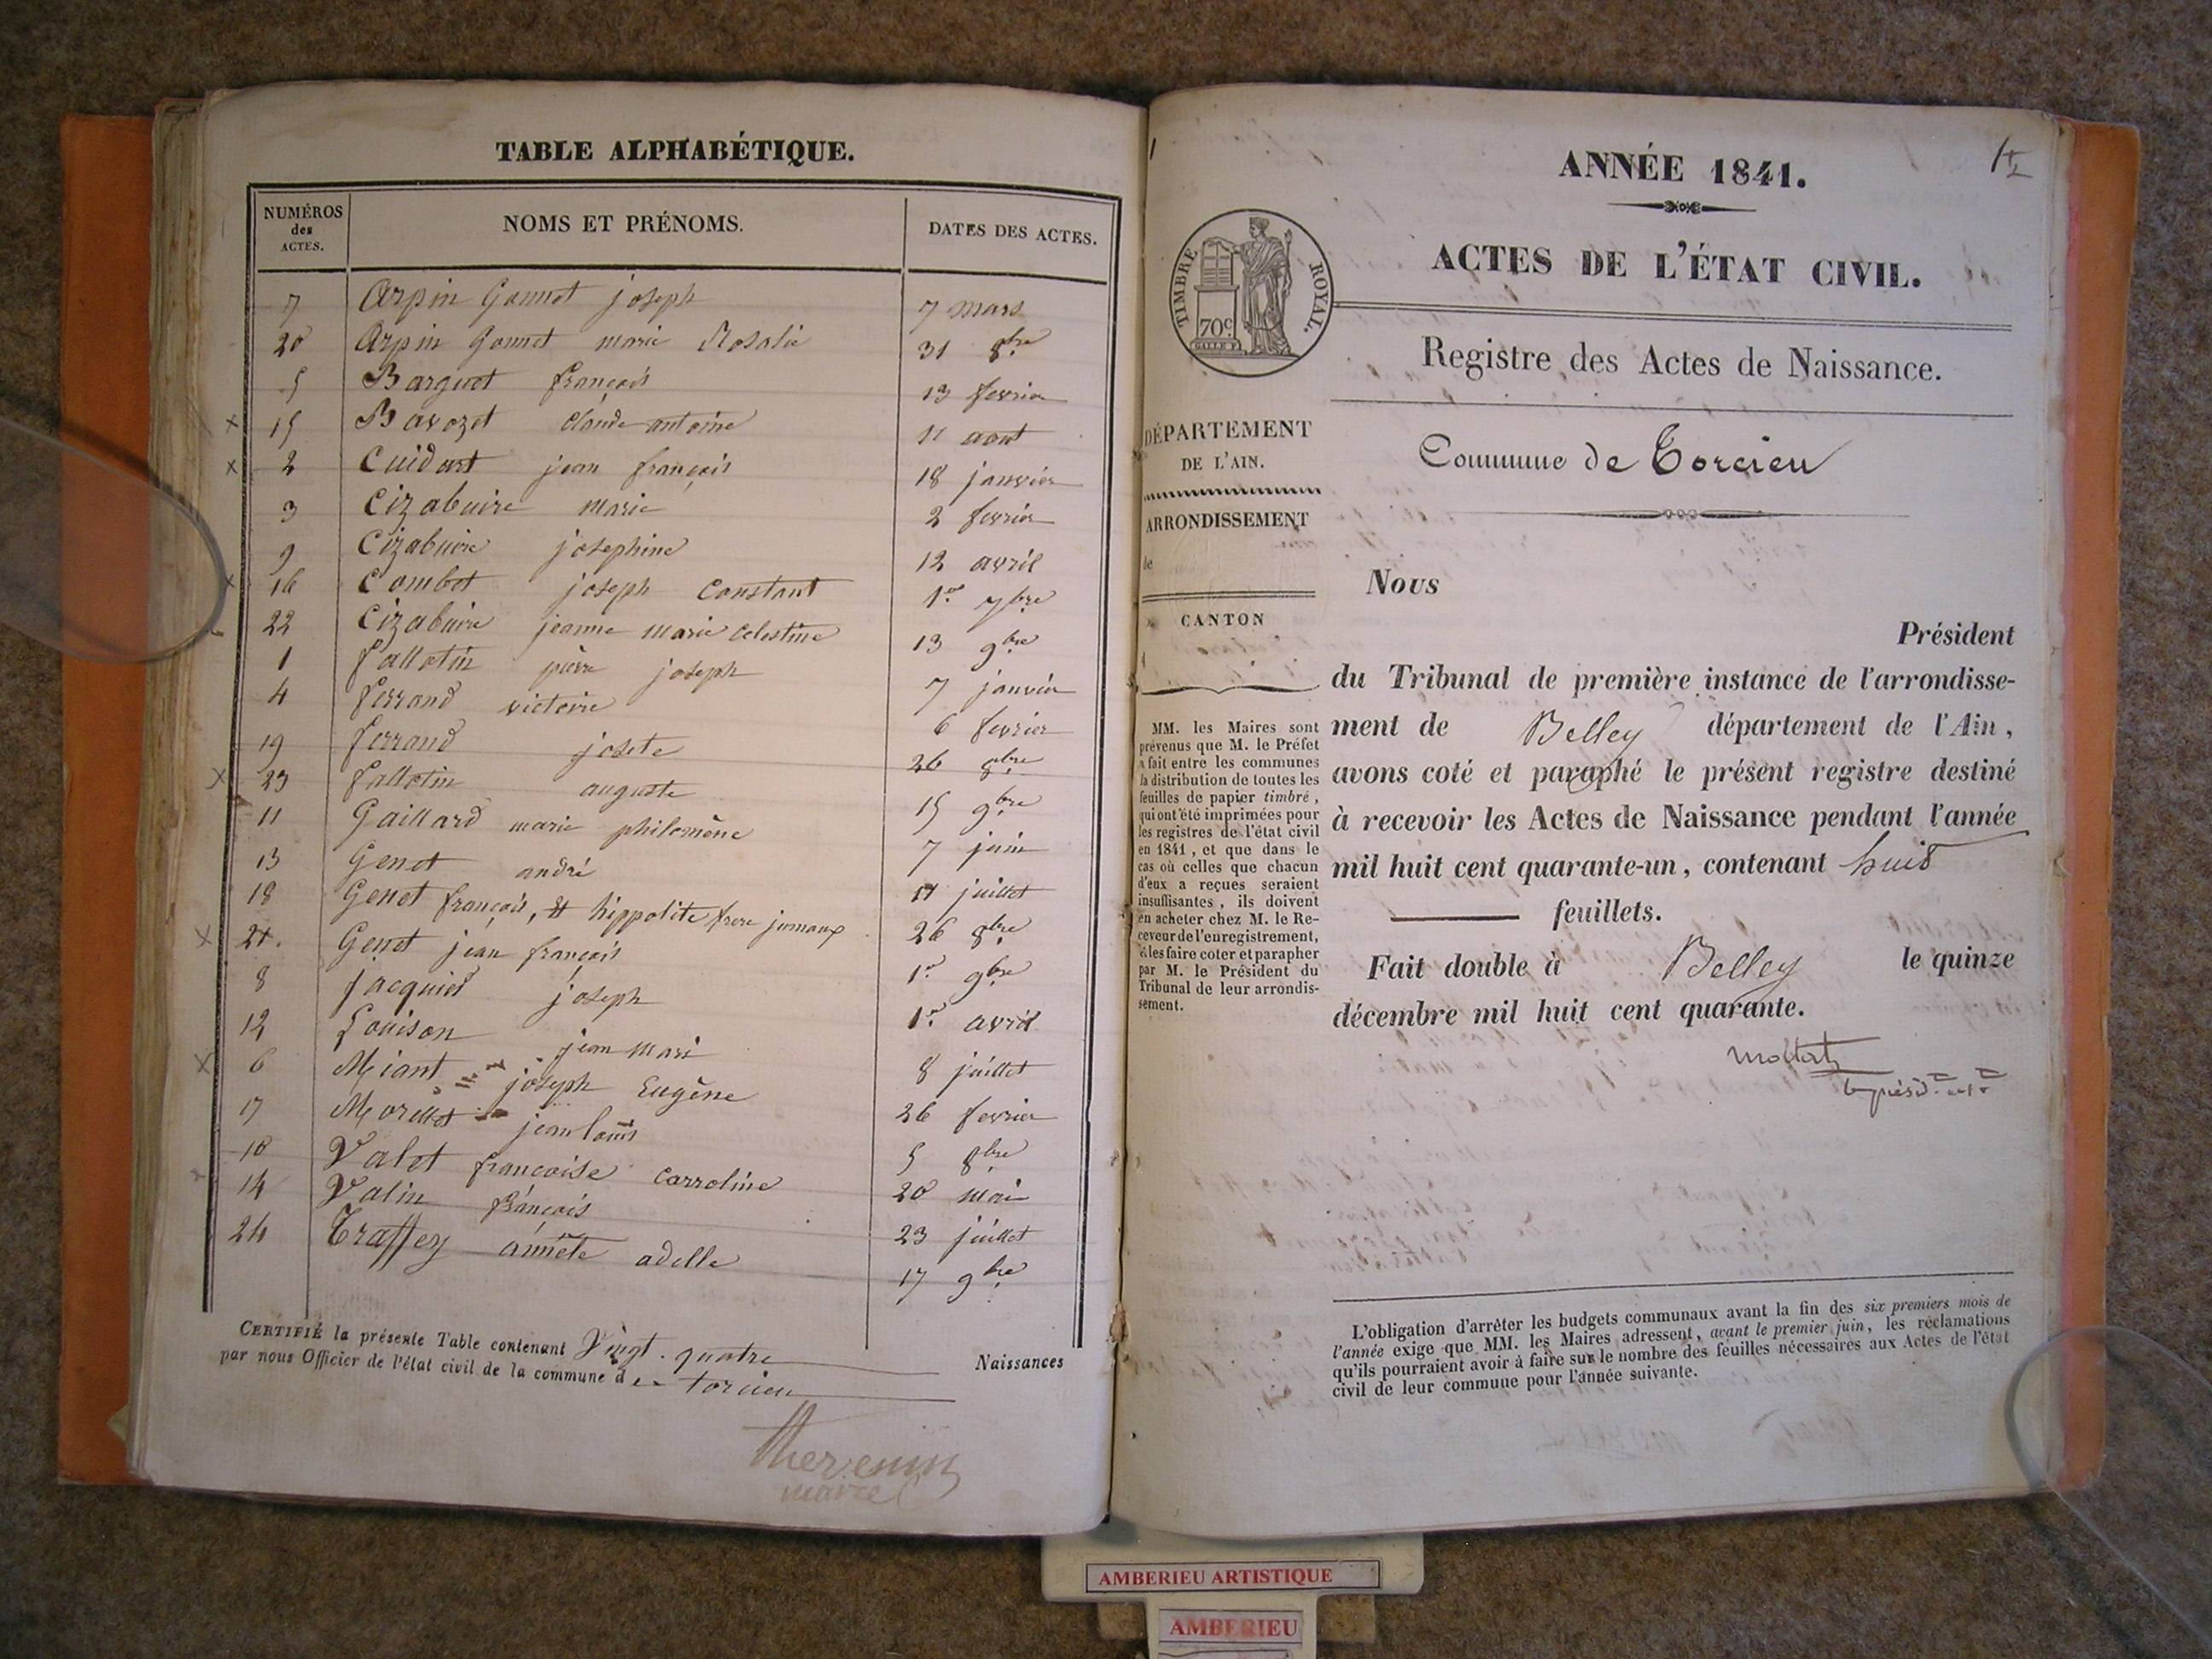 TABLE ALPHABÉTIQUE.
NUMÉROS des ACTES. NOMS ET PRÉNOMS. DATES DES ACTES.
7 Arpin Gonnet joseph 7 mars
20 Arpin Gonnet marie Rosalie 31 8bre
5 Barguet françois 13 fevrier
x 15 Bavozet claude antoine 11 aout
x 2 Cuidart jean françois 18 janvier
3 Cizabuire marie 2 fevrier
9 Cizabuire josephine 12 avril
x 16 Combet joseph Constant 1er 7bre
22 Cizabuire jeanne marie Celestine 13 9bre
1 fallotin pierre joseph 7 janvier
4 ferrand victoire 6 fevrier
19 ferrand josete 26 8bre
x 23 fallotin auguste 15 9bre
11 Gaillard marie philomène 7 juin
13 Genet andré 11 juillet
18 Genet françois, et hippolite frere jumaux 26 8bre
x 21. Genet jean françois 1er 9bre
8 jacquier joseph 1er avril
12 Louison jean Mari 8 juillet
x 6 Miant joseph Eugène 26 fevrier
17 Morellet jean louis 5 8bre
10 Valet françoise Carroline 20 mai
14 Valin françois 23 juillet
24 Traffey annete adelle 17 9bre
CERTIFIÉ la présente Table contenant Vingt-quatre Naissances
par nous Officier de l'état civil de la commune de torcieu
thevenin
maire
1
ANNÉE 1841.
ACTES DE L'ÉTAT CIVIL.
TIMBRE ROYAL.
70c
GALLE F.
Registre des Actes de Naissance.
Commune de Torcieu
DÉPARTEMENT
DE L'AIN.
ARRONDISSEMENT
de
CANTON
MM. les Maires sont
prévenus que M. le Préfet
a fait entre les communes
la distribution de toutes les
feuilles de papier timbré,
qui ont été imprimées pour
les registres de l'état civil
en 1841, et que dans le
cas où celles que chacun
d'eux a reçues seraient
insuffisantes, ils doivent
en acheter chez M. le Re-
ceveur de l'enregistrement,
& les faire coter et parapher
par M. le Président du
Tribunal de leur arrondis-
sement.
Nous
Président
du Tribunal de première instance de l'arrondisse-
ment de Belley département de l'Ain,
avons coté et paraphé le présent registre destiné
à recevoir les Actes de Naissance pendant l'année
mil huit cent quarante-un, contenant huit
feuillets.
Fait double à Belley le quinze
décembre mil huit cent quarante.
L'obligation d'arrêter les budgets communaux avant la fin des six premiers mois de
l'année exige que MM. les Maires adressent, avant le premier juin, les réclamations
qu'ils pourraient avoir à faire sur le nombre des feuilles nécessaires aux Actes de l'état
civil de leur commune pour l'année suivante.
AMBERIEU ARTISTIQUE
AMBERIEU